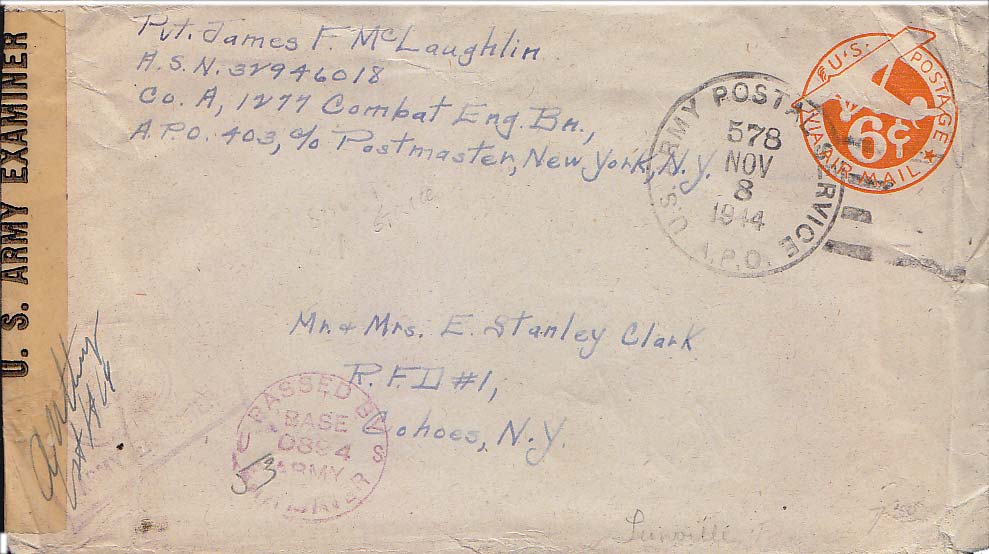 U. S. ARMY EXAMINER
Pvt. James F. McLaughlin
A.S.N. 32946018
Co. A, 1277 Combat Eng. Bn.,
A.P.O. 403, c/o Postmaster, New York, N.Y.
U.S. ARMY POSTAL SERVICE
A.P.O.
578
NOV
8
1944
U.S. POSTAGE
6¢
VIA AIR MAIL
Mr. & Mrs. E. Stanley Clark
R.F.D #1,
Cohoes, N.Y.
PASSED BY
BASE
0894
ARMY
EXAMINER
U S
53
Lunéville